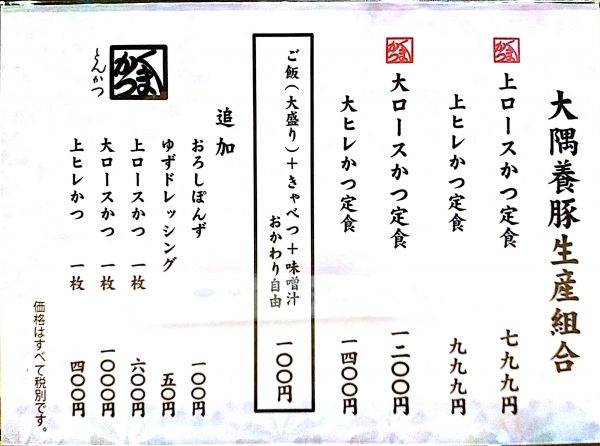 大隅養豚生産組合
くまかつ
上ロースかつ定食 七九九円
上ヒレかつ定食 九九九円
くまかつ
大ロースかつ定食 一二〇〇円
大ヒレかつ定食 一四〇〇円
ご飯(大盛り)+きゃべつ+味噌汁 一〇〇円
おかわり自由
追加
おろしぽんず 一〇〇円
ゆずドレッシング 五〇円
上ロースかつ 一枚 六〇〇円
大ロースかつ 一枚 一〇〇〇円
上ヒレかつ 一枚 四〇〇円
くまかつ
とんかつ
価格はすべて税別です。